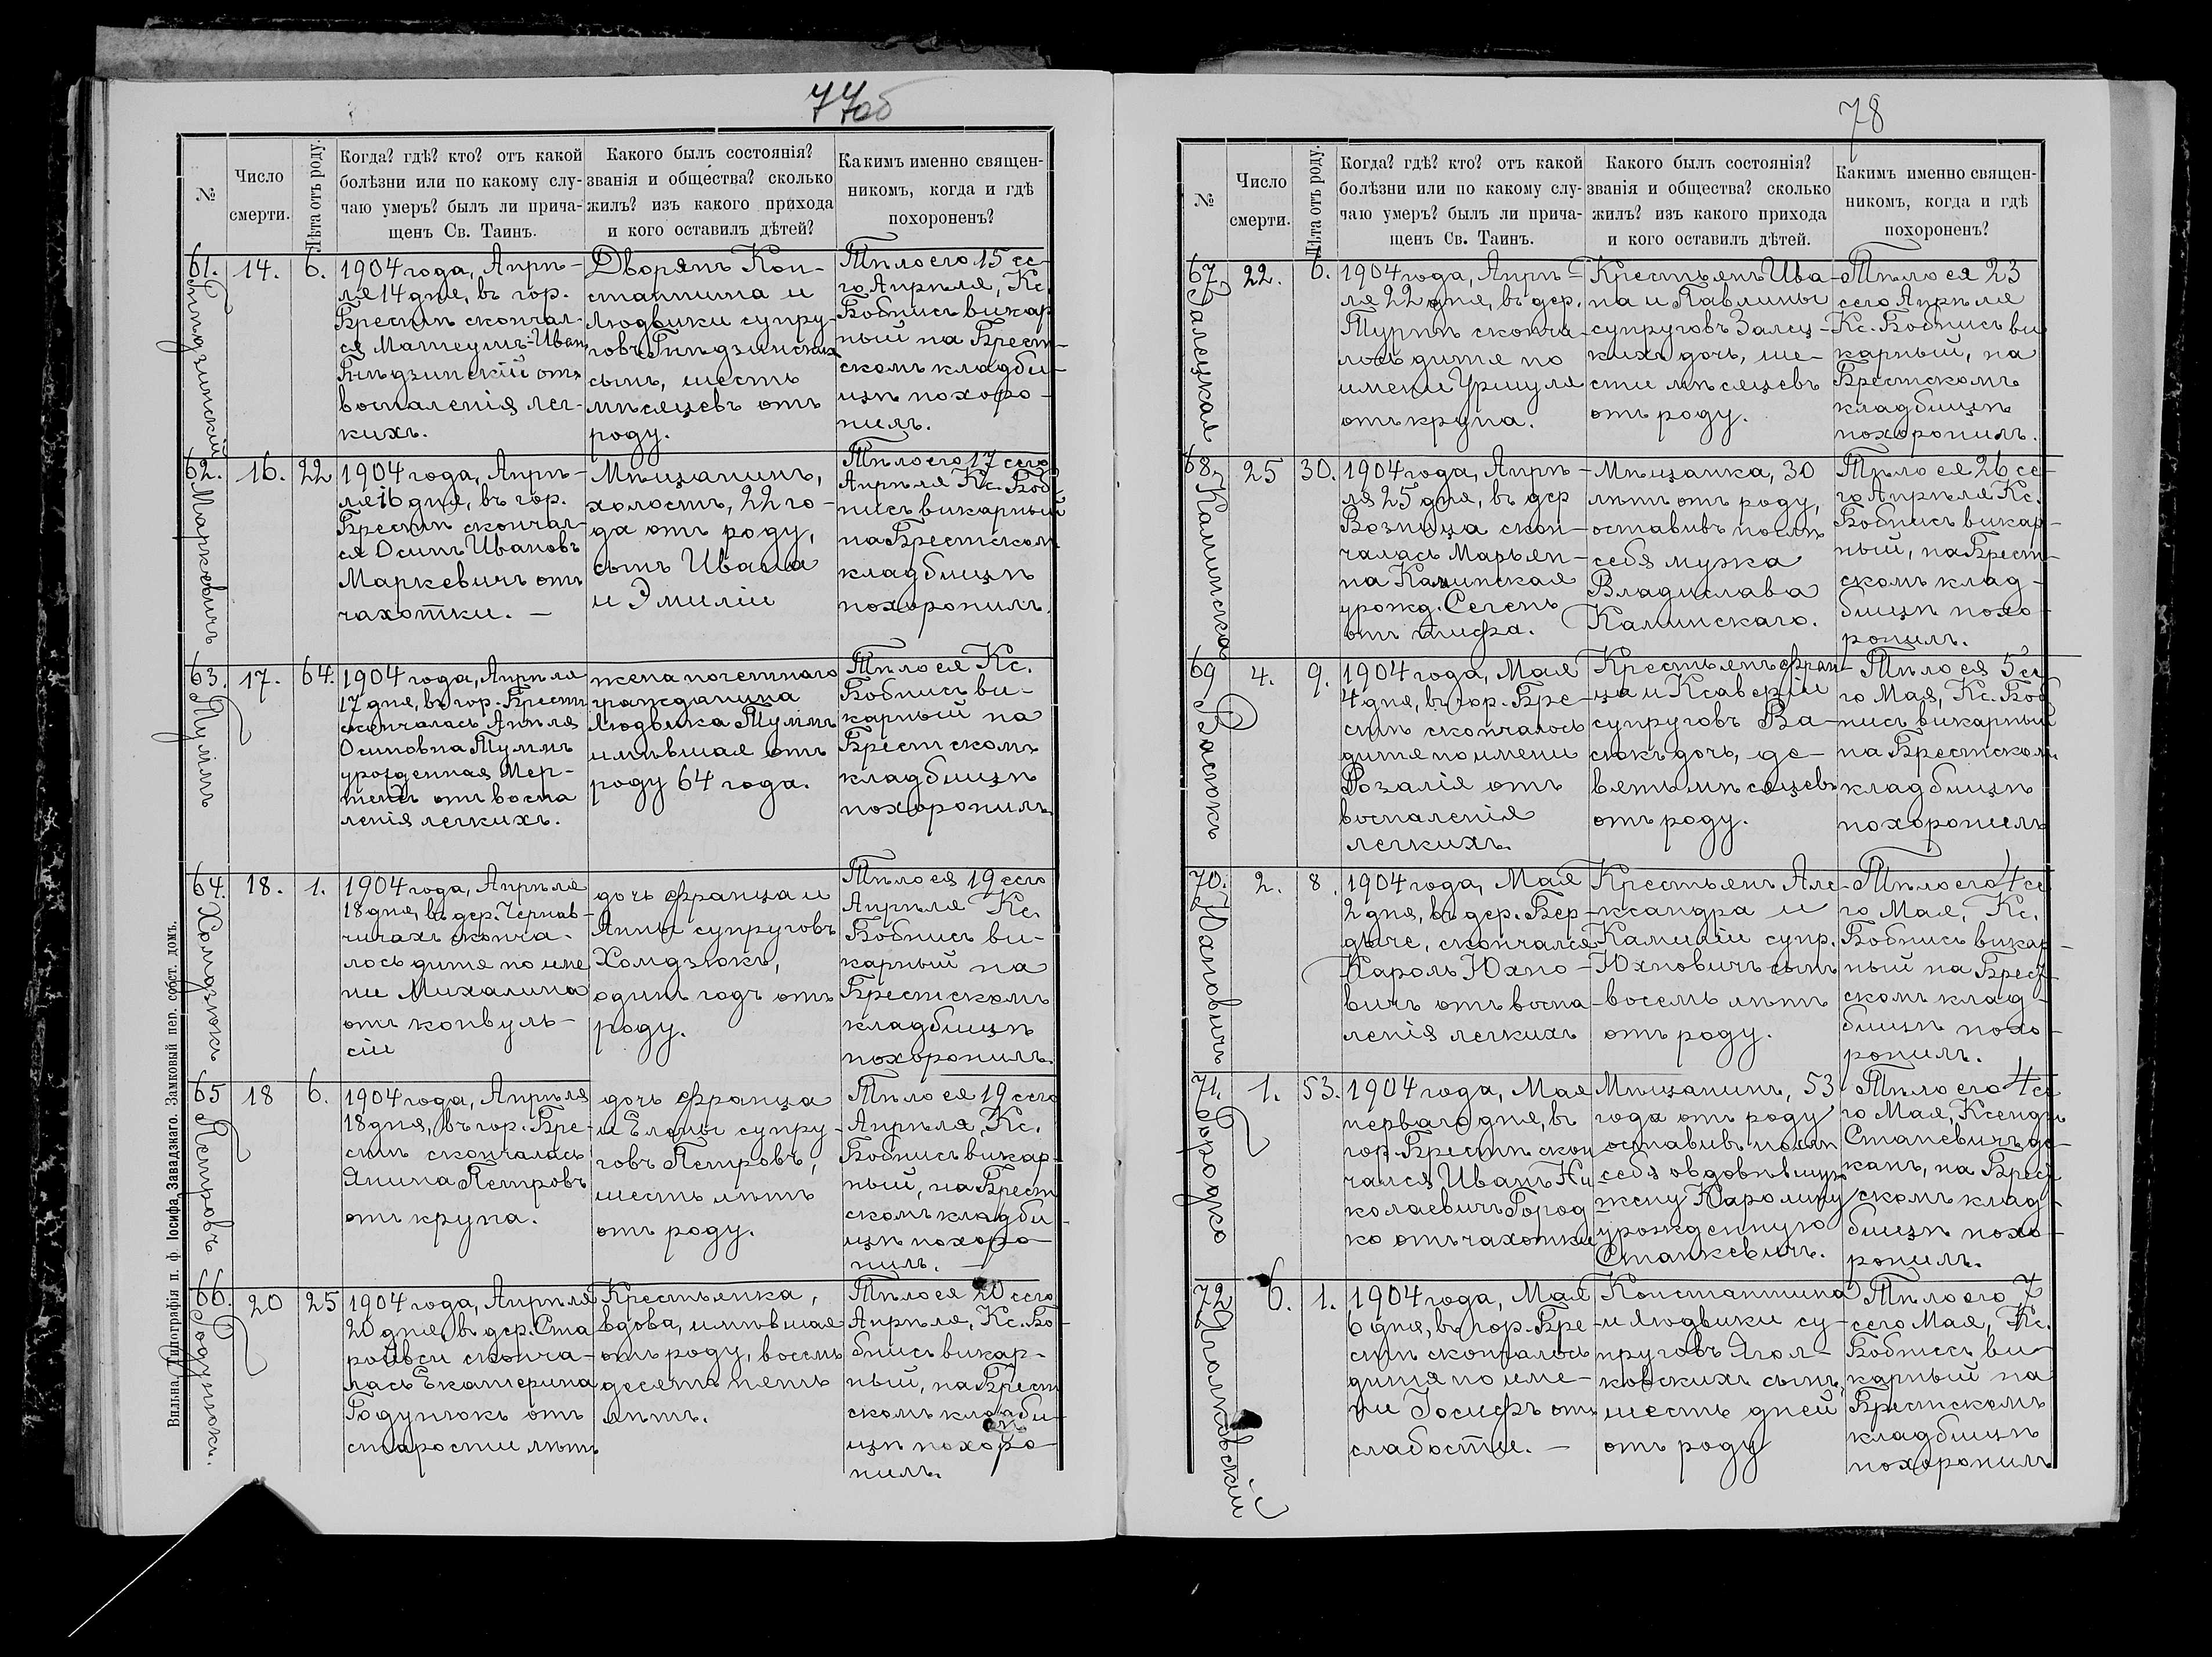 77об
№
Число
смерти.
Лѣта отъ роду.
Когда? гдѣ? кто? отъ какой
болѣзни или по какому слу-
чаю умеръ? былъ ли прича-
щенъ Св. Таинъ.
Какого былъ состоянія?
званія и общества? сколько
жилъ? изъ какого прихода
и кого оставилъ дѣтей?
Какимъ именно священ-
никомъ, когда и гдѣ
похороненъ?
61.
14.
6.
1904 года, Апрѣ-
ля 14 дня, въ гор.
Брестѣ скончал-
ся Матеушъ-Иван
Гнѣдзинскій отъ
воспаленія лег-
кихъ.
Дворянъ Кон-
стантина и
Людвики супру-
говъ Гнѣдзинскихъ
сынъ, шесть
мѣсяцевъ отъ
роду.
Тѣло его 15 се-
го Апрѣля, Кс.
Бобнисъ викар
ный на Брест-
скомъ кладби-
щѣ похоро-
нилъ.
Гнѣдзинскій
62.
16.
22
1904 года, Апрѣ-
ля 16 дня, въ гор.
Брестѣ скончал-
ся Осипъ Ивановъ
Маркевичъ отъ
чахотки. —
Мѣщанинъ,
холостъ, 22 го-
да отъ роду,
сынъ Ивана
и Эмиліи
Тѣло его 17 сего
Апрѣля Кс. Боб
нисъ викарный
на Брестском
кладбищѣ
похоронилъ.
Маркевичъ
63.
17.
64.
1904 года, Апрѣля
17 дня, въ гор. Брестѣ
скончалась Анѣля
Осиповна Туммъ
урожденная Мер-
тенсъ отъ воспа
ленія легкихъ.
жена почетнаго
гражданина
Людвика Туммъ
имѣвшая отъ
роду 64 года.
Тѣло ея Кс.
Бобнисъ ви-
карный на
Брестскомъ
кладбищѣ
похоронилъ.
Туммъ
64.
18.
1.
1904 года, Апрѣля
18 дня, въ дер. Чернав-
чичахъ сконча-
лось дитя по име
ни Михалина
отъ конвуль-
сіи
дочь Франца и
Анны супруговъ
Хомдзюкъ,
одинъ годъ отъ
роду.
Тѣло ея 19 сего
Апрѣля Кс.
Бобнисъ ви-
карный на
Брестскомъ
кладбищѣ
похоронилъ.
Хомдзюкъ
65
18
6.
1904 года, Апрѣля
18 дня, въ гор. Бре-
стѣ скончалась
Янина Петровъ
отъ крупа.
дочь Франца
и Елены супру-
говъ Петровъ,
шесть лѣтъ
отъ роду.
Тѣло ея 19 сего
Апрѣля, Кс.
Бобнисъ викар-
ный, на Брест
скомъ кладби-
щѣ похоро-
нилъ. —
Петровъ
66.
20
25
1904 года, Апрѣля
20 дня, въ дер. Ста
ройвси сконча-
лась Екатерина
Годунюкъ отъ
старости лѣтъ
Крестьянка,
вдова, имѣвшая
отъ роду, восемь
десятъ пять
лѣтъ.
Тѣло ея 20 сего
Апрѣля, Кс. Бо-
бнисъ викар-
ный, на Брест
скомъ кладби-
щѣ похоро-
нилъ.
Годунюкъ.
Вильна, Типографія п. ф. Іосифа Завадзкаго. Замковый пер. собст. домъ.
78
№
Число
смерти.
Лѣта отъ роду.
Когда? гдѣ? кто? отъ какой
болѣзни или по какому слу-
чаю умеръ? былъ ли прича-
щенъ Св. Таинъ.
Какого былъ состоянія?
званія и общества? сколько
жилъ? изъ какого прихода
и кого оставилъ дѣтей.
Какимъ именно священ-
никомъ, когда и гдѣ
похороненъ?
67.
22.
6.
1904 года, Апрѣ-
ля 22 дня, въ дер.
Турнѣ сконча-
лось дитя по
имени Уршуля
отъ крупа.
Крестьянъ Ива-
на и Павлины
супруговъ Залец-
кихъ дочь, ше-
сти мѣсяцевъ
отъ роду.
Тѣло ея 23
сего Апрѣля
Кс. Бобнисъ ви
карный, на
Брестскомъ
кладбищѣ
похоронилъ.
Залецкая
68.
25
30.
1904 года, Апрѣ-
ля 25 дня, въ дер
Возница скон-
чалась Марьян-
на Каминская
урожд. Сегень
отъ тифа.
Мѣщанка, 30
лѣтъ отъ роду,
оставивъ послѣ
себя мужа
Владислава
Каминскаго.
Тѣло ея 26 се-
го Апрѣля Кс.
Бобнисъ викар-
ный, на Брест-
скомъ клад-
бищѣ похо-
ронилъ.
Каминская
69
4.
9.
1904 года, Мая
4 дня, въ гор. Бре-
стѣ скончалось
дитя по имени
Розалія отъ
воспаленія
легкихъ.
Крестьянъ Фран-
ца и Ксаверіи
супруговъ Ва-
сюкъ дочь, де-
вять мѣсяцевъ
отъ роду.
Тѣло ея 5 се
го Мая, Кс. Боб
нисъ викарный
на Брестском
кладбищѣ
похоронилъ
Васюкъ
70.
2.
8.
1904 года, Мая
2 дня, въ дер. Бер-
дыче, скончался
Кароль Юхно-
вичъ отъ воспа-
ленія легкихъ
Крестьянъ Але-
ксандра и
Камиліи супр.
Юхновичъ сынъ
восемь лѣтъ
отъ роду.
Тѣло его 4 се
го Мая, Кс.
Бобнисъ викар-
ный на Брест-
скомъ клад-
бищѣ похо-
ронилъ.
Юхновичъ
71.
1.
53.
1904 года, Мая
перваго дня, въ
гор. Брестѣ скон
чался Иванъ Ни
колаевичъ Город
ко отъ чахотки
Мѣщанинъ, 53
года отъ роду
оставивъ послѣ
себя овдовѣвшую
жену Каролину
урожденную
Станкевичъ.
Тѣло его 4 се
го Мая, Ксендзъ
Станевичъ де-
канъ, на Брест
скомъ клад-
бищѣ похо-
ронилъ.
Городко
72
6.
1.
1904 года, Мая
6 дня, въ гор. Бре
стѣ скончалось
дитя по име-
ни Іосифъ отъ
слабости. —
Константина
и Людвики су-
пруговъ Ягол-
ковскихъ сынъ,
шесть дней
отъ роду
Тѣло его 7
сего Мая, Кс.
Бобнисъ ви-
карный на
Брестскомъ
кладбищѣ
похоронилъ
Яголковскій